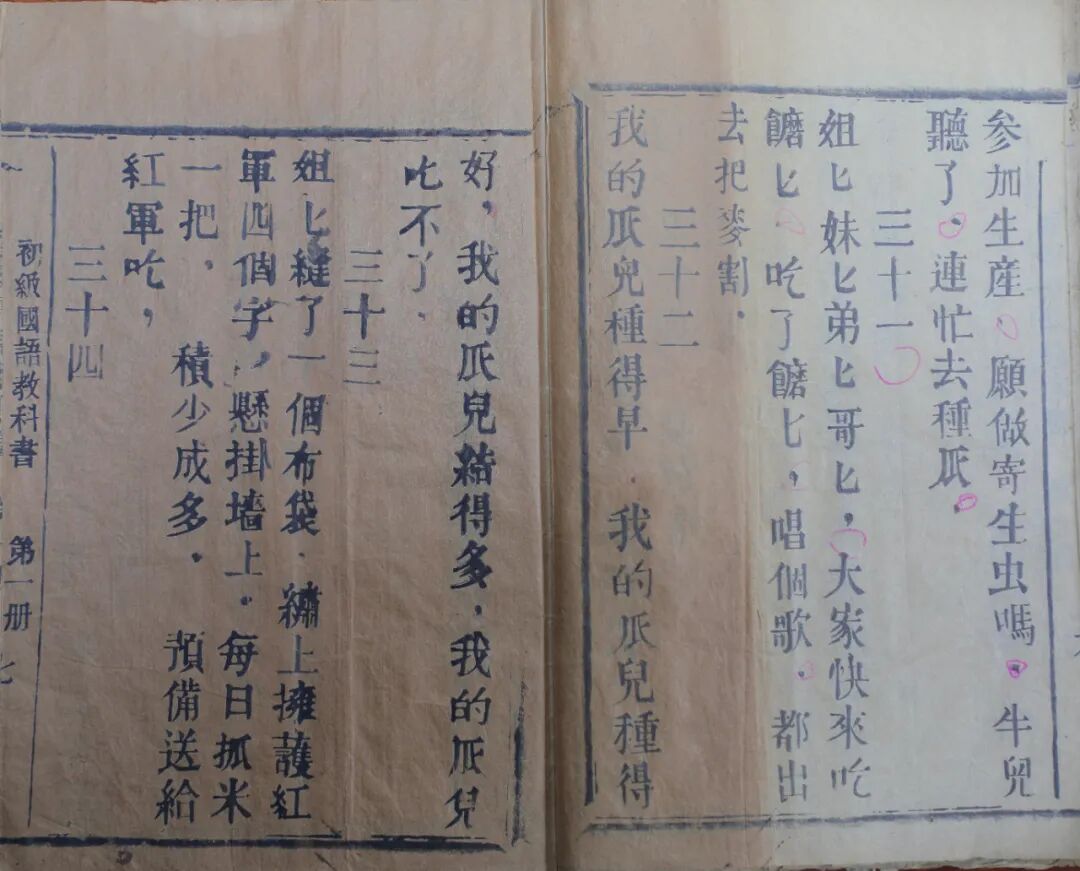 參加生產、願做寄生虫嗎。牛兒
聽了、連忙去種瓜.
三十一
姐匕妹匕弟匕哥匕，大家快來吃
饝匕、吃了饝匕，唱個歌.都出
去把麥割.
三十二
我的瓜兒種得早.我的瓜兒種得
好，我的瓜兒結得多，我的瓜兒
吃不了.
三十三
姐匕縫了一個布袋.繡上擁護紅
軍四個字，懸掛墻上。每日抓米
一把，積少成多.預備送給
紅軍吃，
三十四
初級國語教科書 第一册 七